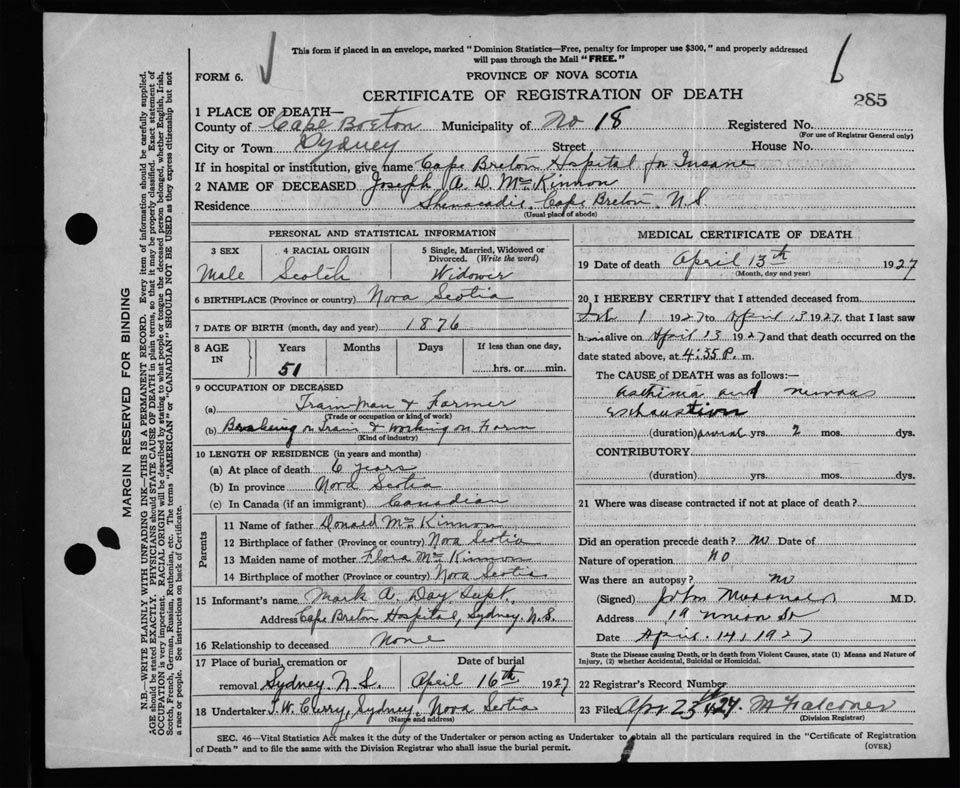 This form if placed in an envelope, marked "Dominion Statistics—Free, penalty for improper use $300," and properly addressed
will pass through the Mail "FREE."
FORM 6.
PROVINCE OF NOVA SCOTIA
CERTIFICATE OF REGISTRATION OF DEATH
285
1 PLACE OF DEATH—
County of Cape Breton Municipality of No 18 Registered No.
(For use of Registrar General only)
City or Town Sydney Street House No.
If in hospital or institution, give name Cape Breton Hospital for Insane
2 NAME OF DECEASED Joseph A. D. McKinnon
Residence Shenacadie, Cape Breton. N.S
(Usual place of abode)
PERSONAL AND STATISTICAL INFORMATION
3 SEX 4 RACIAL ORIGIN 5 Single, Married, Widowed or
Divorced. (Write the word)
Male Scotch Widower
6 BIRTHPLACE (Province or country) Nova Scotia
7 DATE OF BIRTH (month, day and year) 1876
8 AGE IN Years Months Days If less than one day,
51 hrs. or min.
9 OCCUPATION OF DECEASED
(a) Train Man & Farmer
(Trade or occupation or kind of work)
(b) Braking on Train & Working on Farm
(Kind of industry)
10 LENGTH OF RESIDENCE (in years and months)
(a) At place of death 6 years
(b) In province Nova Scotia
(c) In Canada (if an immigrant) Canadian
Parents
11 Name of father Donald McKinnon
12 Birthplace of father (Province or country) Nova Scotia
13 Maiden name of mother Flora McKinnon
14 Birthplace of mother (Province or country) Nova Scotia
15 Informant's name Mark A. Day Supt.
Address Cape Breton Hospital, Sydney, N.S.
16 Relationship to deceased None
17 Place of burial, cremation or Date of burial
removal Sydney N.S. April 16th 1927
18 Undertaker T. W. Curry, Sydney, Nova Scotia
(Name and address)
MEDICAL CERTIFICATE OF DEATH
19 Date of death April 13th 1927
(Month, day and year)
20 I HEREBY CERTIFY that I attended deceased from
1 1927 to April 13 1927. that I last saw
him alive on April 13 1927 and that death occurred on the
date stated above, at 4:35 P. m.
The CAUSE of DEATH was as follows:—
asthma and nervous
exhaustion
(duration) yrs. 2 mos. dys.
CONTRIBUTORY
(duration) yrs. mos. dys.
21 Where was disease contracted if not at place of death?
Did an operation precede death? no Date of
Nature of operation no
Was there an autopsy? no
(Signed) John M.D.
Address 19 Union St
Date April. 14, 1927
State the Disease causing Death, or in death from Violent Causes, state (1) Means and Nature of
Injury, (2) whether Accidental, Suicidal or Homicidal.
22 Registrar's Record Number
23 Filed Apr 23 27. M Falconer
(Division Registrar)
SEC. 46—Vital Statistics Act makes it the duty of the Undertaker or person acting as Undertaker to obtain all the particulars required in the "Certificate of Registration
of Death" and to file the same with the Division Registrar who shall issue the burial permit.
(OVER)
MARGIN RESERVED FOR BINDING
N.B.—WRITE PLAINLY WITH UNFADING INK—THIS IS A PERMANENT RECORD. Every item of information should be carefully supplied.
AGE should be stated EXACTLY. PHYSICIANS should STATE CAUSE OF DEATH in plain terms, so that it may be properly classified. Exact statement of
OCCUPATION is very important. RACIAL ORIGIN will be described by stating to what people or tongue the deceased person belonged, whether English, Irish,
Scotch, French, German, Russian, Ruthenian, etc. The terms "AMERICAN" or "CANADIAN" SHOULD NOT BE USED as they express citizenship but not
a race or people. See instructions on back of Certificate.